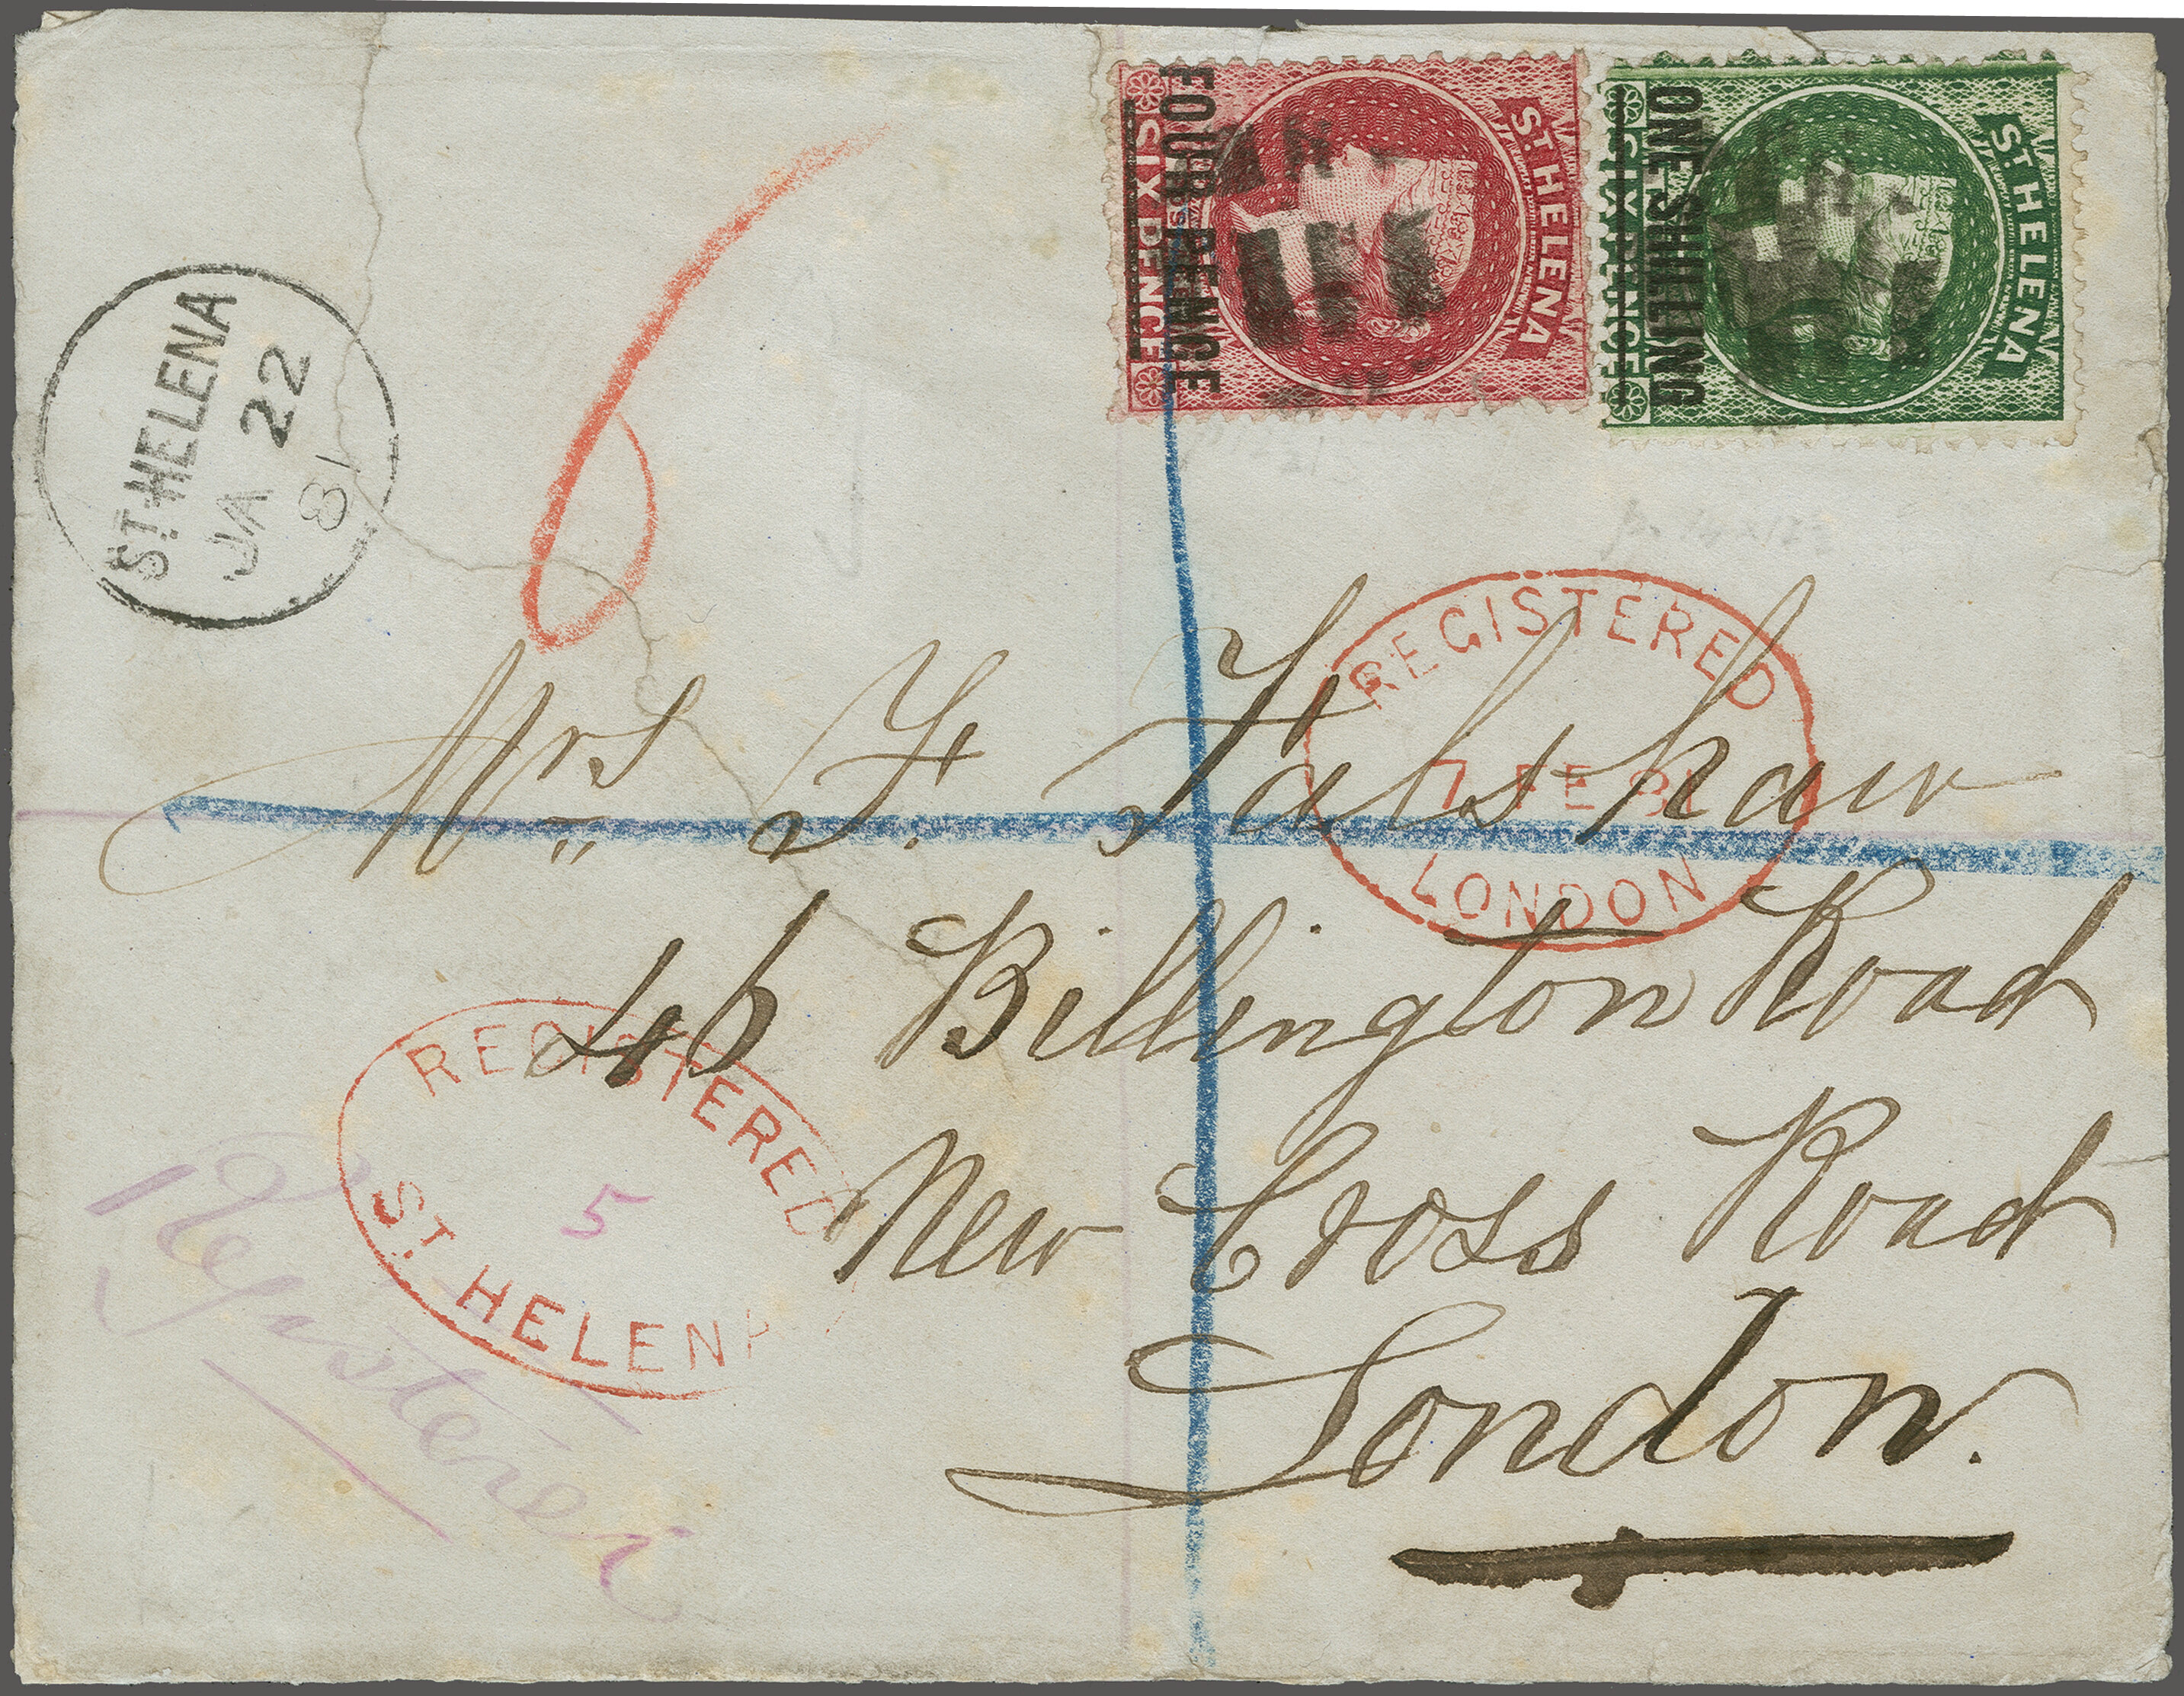 ST. HELENA
SIX PENCE
FOUR PENCE
ST. HELENA
SIX PENCE
ONE SHILLING
ST. HELENA
JA 22
81
REGISTERED
7 FE 81
LONDON
Mrs F. Falshaw
46 Billington Road
New Cross Road
London.
REGISTERED
5
ST. HELENA
Register